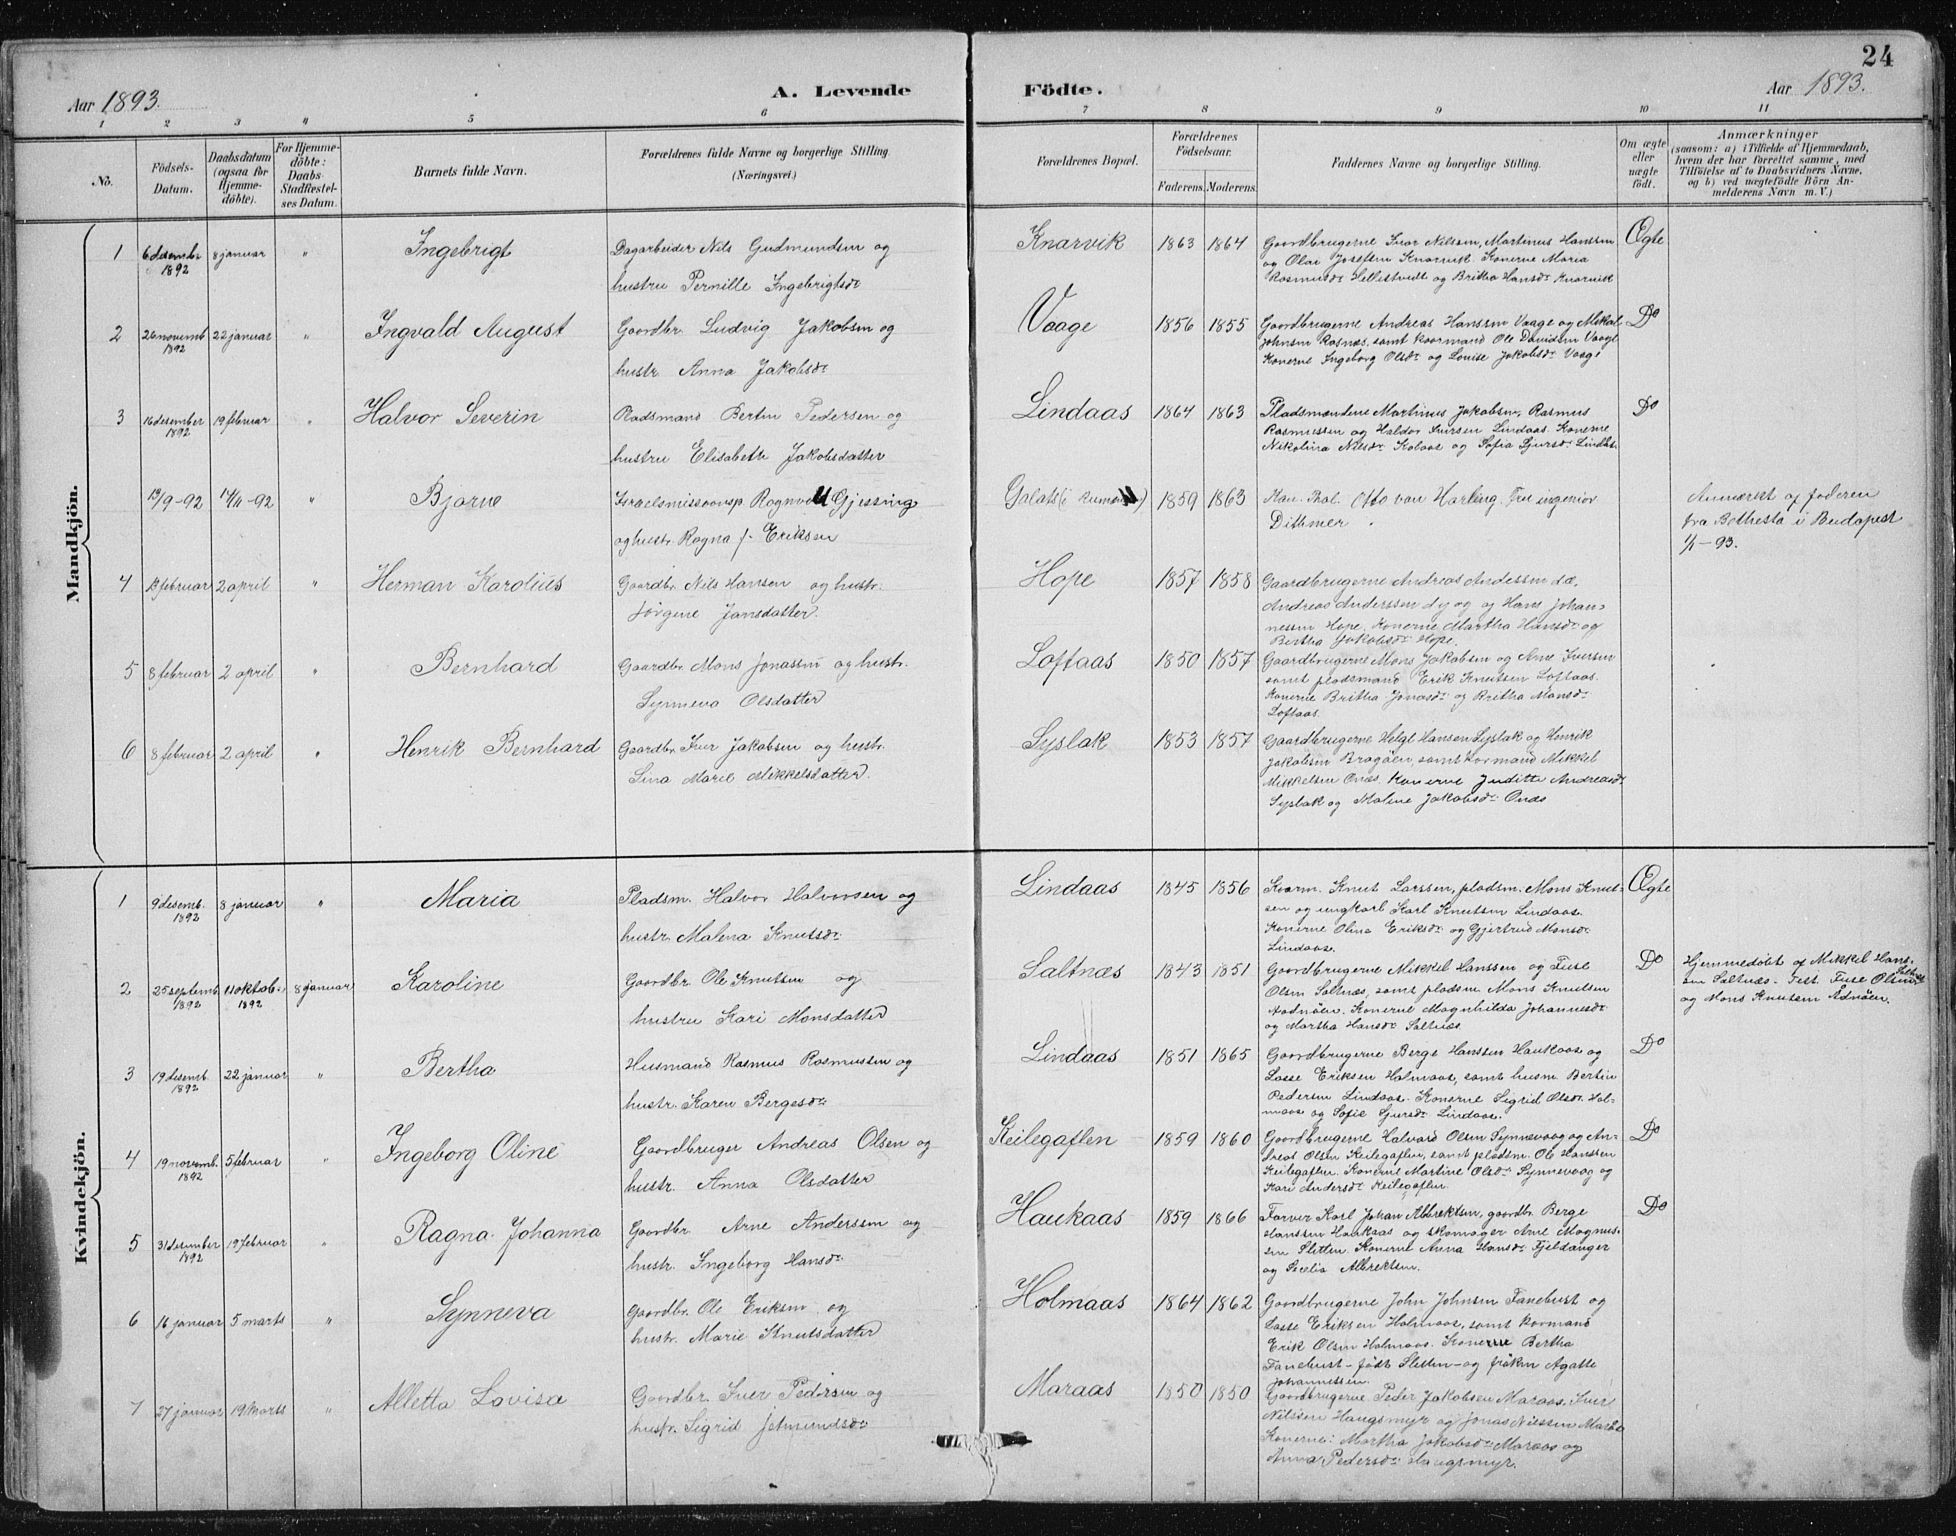 24
Aar 1893.
A. Levende Födte.
Aar 1893.
1 2 3 4 5 6 7 8 9 10 11
No.
Födsels-Datum.
Daabsdatum (ogsaa for Hjemmedöbte).
For Hjemmedöbte: Daabs Stadfæstelses Datum.
Barnets fulde Navn.
Forældrenes fulde Navne og borgerlige Stilling. (Næringsvei.)
Forældrenes Bopæl.
Forældrenes Födselsaar.
Faderens. Moderens.
Faddernes Navne og borgerlige Stilling.
Om ægte eller uægte födt.
Anmærkninger (saasom: a) i Tilfælde af Hjemmedaab, hvem der har forrettet samme, med Tilföielse af to Daabsvidners Navne, og b) ved uægtefödte Börn Anmelderens Navn m. V.)
Mandkjön.
1 6 desembr 1892 8 januar " Ingebrigt
Dagarbeider Nils Gudmundsen og
hustru Pernille Ingebrigtsdr
Knarvik 1863 1864
Gaardbrugerne Ivar Nilssen, Martinus Hanssen
og Olai Josefsen Knarvik. Konerne Maria
Rasmusdr Hellistvedt og Britha Hansdr Knarvik
Ægte
2 26 novemb. 1892 22 januar " Ingvald August
Gaardbr. Ludvig Jakobsen og
hustr. Anna Jakobsdr
Vaage 1856 1855
Gaardbrugerne Andreas Hanssen Vaage og Mikal
Johnsen Rosnæs, samt kaarmand Ole Davidsen Vaage
Konerne Ingeborg Olsdr og Louise Jakobsdr Vaage
Do
3 16 desember 1892 19 februar " Halvor Severin
Pladsmand Bertin Pedersen og
hustru Elisabeth Jakobsdatter
Lindaas 1864 1863
Pladsmændene Martinus Jakobsen, Rasmus
Rasmussen og Haldor Iversen Lindaas. Konerne
Nikolina Nilsdr Kolaas og Sofia Sjursdr Lindaas.
Do
13/9-92 14/11-92 " Bjarne
Israelsmissionsp. Ragnvald Gjessing
og hustr. Ragna f. Eriksen
Galatz (i Rumænien) 1859 1863
Kan. Thal. Otto van Harling. Fru ingeniør
Dithmer.
Anmeldt af faderen
fra Bethesta i Budapest
1/1-93.
4 12 februar 2 april " Herman Karolius
Gaardbr. Nils Hansen og hustr.
Jørgine Jansdatter.
Hope 1857 1858
Gaardbrugerne Andreas Anderssen d.æ,
Andreas Anderssen d y og og Hans Johan-
nessen Hope. Konerne Martha Hansdr og
Bertha Jakobsdr Hope.
5 8 februar 2 april " Bernhard
Gaardbr. Mons Jonassen og hustr.
Synneva Olsdatter
Loftaas 1850 1857
Gaardbrugerne Mons Jakobsen og Arne Iversen
samt pladsmand Erik Knutsen Loftaas.
Konerne Britha Jonasdr og Britha Monsdr
Loftaas.
6 8 februar 2 april " Henrik Bernhard
Gaardbr. Iver Jakobsen og hustr.
Lina Marie Mikkelsdatter.
Syslak 1853 1857
Gaardbrugerne Helge Hansen Syslak og Henrik
Jakobsen Bragøen, samt kormand Mikkel
Mikkelsen Onæs. Konerne Juditte Andreasdr
Syslak og Maline Jakobsdr Onæs
Kvindekjön.
1 9 desemb. 1892 8 januar " Maria
Pladsm. Halvor Halvorsen og
hustr. Malena Knutsdr
Lindaas 1845 1856
Kvarm. Knut Larssen, pladsm. Mons Knut-
sen og ungkarl Karl Knutsen Lindaas.
Konerne Olina Eriksdr og Gjertrud Monsdr
Lindaas.
Ægte
2 25 septemb. 1892 11 oktob. 1892 8 januar Karoline
Gaardbr. Ole Knutsen og
hustru Kari Monsdatter
Saltnæs 1843 1851
Gaardbrugerne Mikkel Hanssen og Tuse
Olsen Saltnæs, samt pladsm Mons Knutsen
Aadnøen. Konerne Magnhilda Johannesdr
og Martha Hansdr Saltnæs.
Do
Hjemmedøbt af Mikkel Hans-
sen Saltnæs. Test. Tuse Olsen Saltnæs
og Mons Knutsen Ådnøen.
3 19 desemb. 1892 22 januar " Bertha
Husmand Rasmus Rasmussen og
hustr. Karen Bergesdr
Lindaas 1851 1865
Gaardbrugerne Berge Hanssen Haukaas og
Lasse Eriksen Holmaas, samt husm. Bertin
Pedersen Lindaas. Konerne Sigrid Olsdr Hol-
maas og Sofie Sjursdr Lindaas.
Do
4 19 novemb. 1892 5 februar " Ingeborg Oline
Gaardbruger Andreas Olsen og
hustr. Anna Olsdatter
Keilegaflen 1859 1860
Gaardbrugerne Halvard Olsen Synnevaag og An-
dreas Olsen Keilegaflen, samt pladsm. Ole Hanssen
Keilegaflen. Konerne Martine Olsdr Synnevaag og
Kari Andersdr Keilegaflen.
Do
5 31 desember 1892 19 februar " Ragna Johanna
Gaardbr. Arne Anderssen og
hustr. Ingeborg Hansdr
Haukaas 1859 1866
Farver Karl Johan Albrektsen, gaardbr. Berge
Hanssen Haukaas og skomager Arne Magnus-
sen Sletten. Konerne Anna Hansdr Fjeldanger
og Secilia Albrektsen.
Do
6 16 januar 5 marts " Synneva
Gaardbr. Ole Eriksen og
hustr. Marie Knutsdatter
Holmaas 1864 1862
Gaardbrugerne John Johnsen Fanebust og
Lasse Eriksen Holmaas, samt kormand
Erik Olsen Holmaas. Konerne Bertha
Fanebust - født Sletten - og frøken Agatte
Johannessen.
7 27 januar 19 marts " Alletta Lovisa
Gaardbr. Iver Pedersen og
hustr. Sigrid Jetmundsdr
Maraas 1850 1850
Gaardbrugerne Peder Jakobsen Maraas. Iver
Nilssen Haugsmyr og Jonas Nilssen Maraas
Konerne: Martha Jakobsdr Maraas og
Anna Pedersdr Haugsmyr.